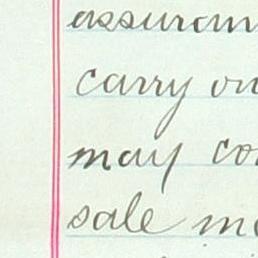 assuran
carry on
may co
sale m